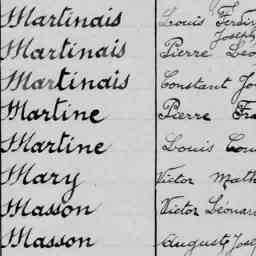 Martinais Louis Ferdin
Joseph
Martinais Pierre Léo
Martinais Constant Jo
Martine Pierre Fra
Martine Louis
Mary Victor Math
Masson Victor Léonar
Masson Auguste Jose